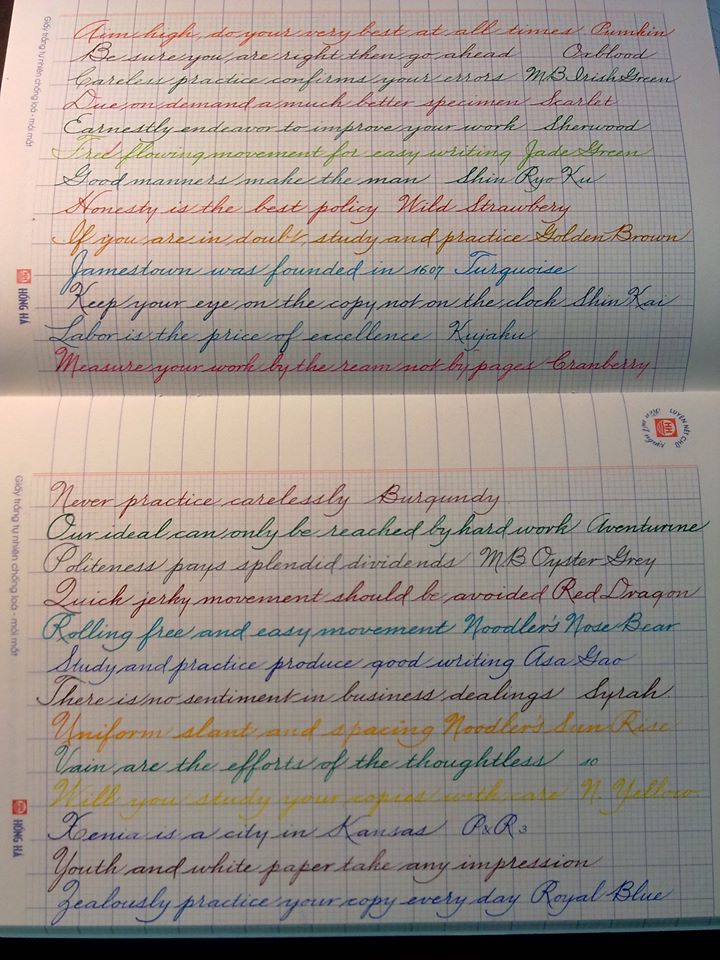 Aim high, do your very best at all times Pumkin
Be sure you are right then go ahead Oxblood
Careless practice confirms your errors MB Irish Green
Due on demand a much better specimen Scarlet
Earnestly endeavor to improve your work Sherwood
Free flowing movement for easy writing Jade Green
Good manners make the man Shin Ryo Ku
Honesty is the best policy Wild Strawbery
If you are in doubt, study and practice Golden Brown
Jamestown was founded in 1607 Turquoise
Keep your eye on the copy not on the clock Shin Kai
Labor is the price of excellence Kujaku
Measure your work by the ream not by pages Cranberry
Giấy trắng tự nhiên chống loá - mỏi mắt
HH HỒNG HÀ
LUYỆN NÉT CHỮ
HH
Never practice carelessly Burgundy
Our ideal can only be reached by hard work Aventurine
Politeness pays splendid dividends MB Oyster Grey
Quick jerky movement should be avoided Red Dragon
Rolling free and easy movement Noodler's Nose Bear
Study and practice produce good writing Asa Gao
There is no sentiment in business dealings Syrah
Uniform slant and spacing Noodler's Sun Rise
Vain are the efforts of the thoughtless 10
Will you study your copies with care N. Yellow
Xenia is a city in Kansas P&R 3
Youth and white paper take any impression
Zealously practice your copy every day Royal Blue
Giấy trắng tự nhiên chống loá - mỏi mắt
HH HỒNG HÀ